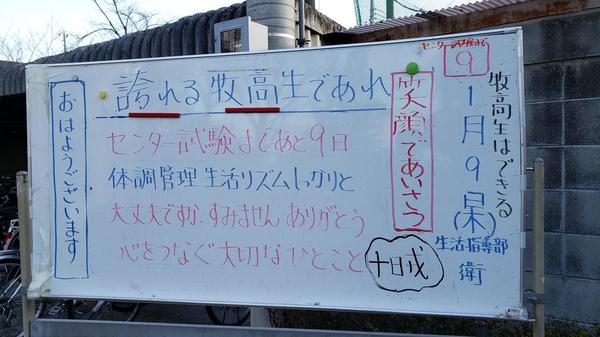 センター試験まで
9
牧高生はできる
1月9日(木)
生活指導部
衛
誇れる牧高生であれ
笑顔であいさつ
おはようございます
センター試験まであと9日
体調管理 生活リズムしっかりと
大丈夫ですか すみません ありがとう
心をつなぐ大切なひとこと
十日戎